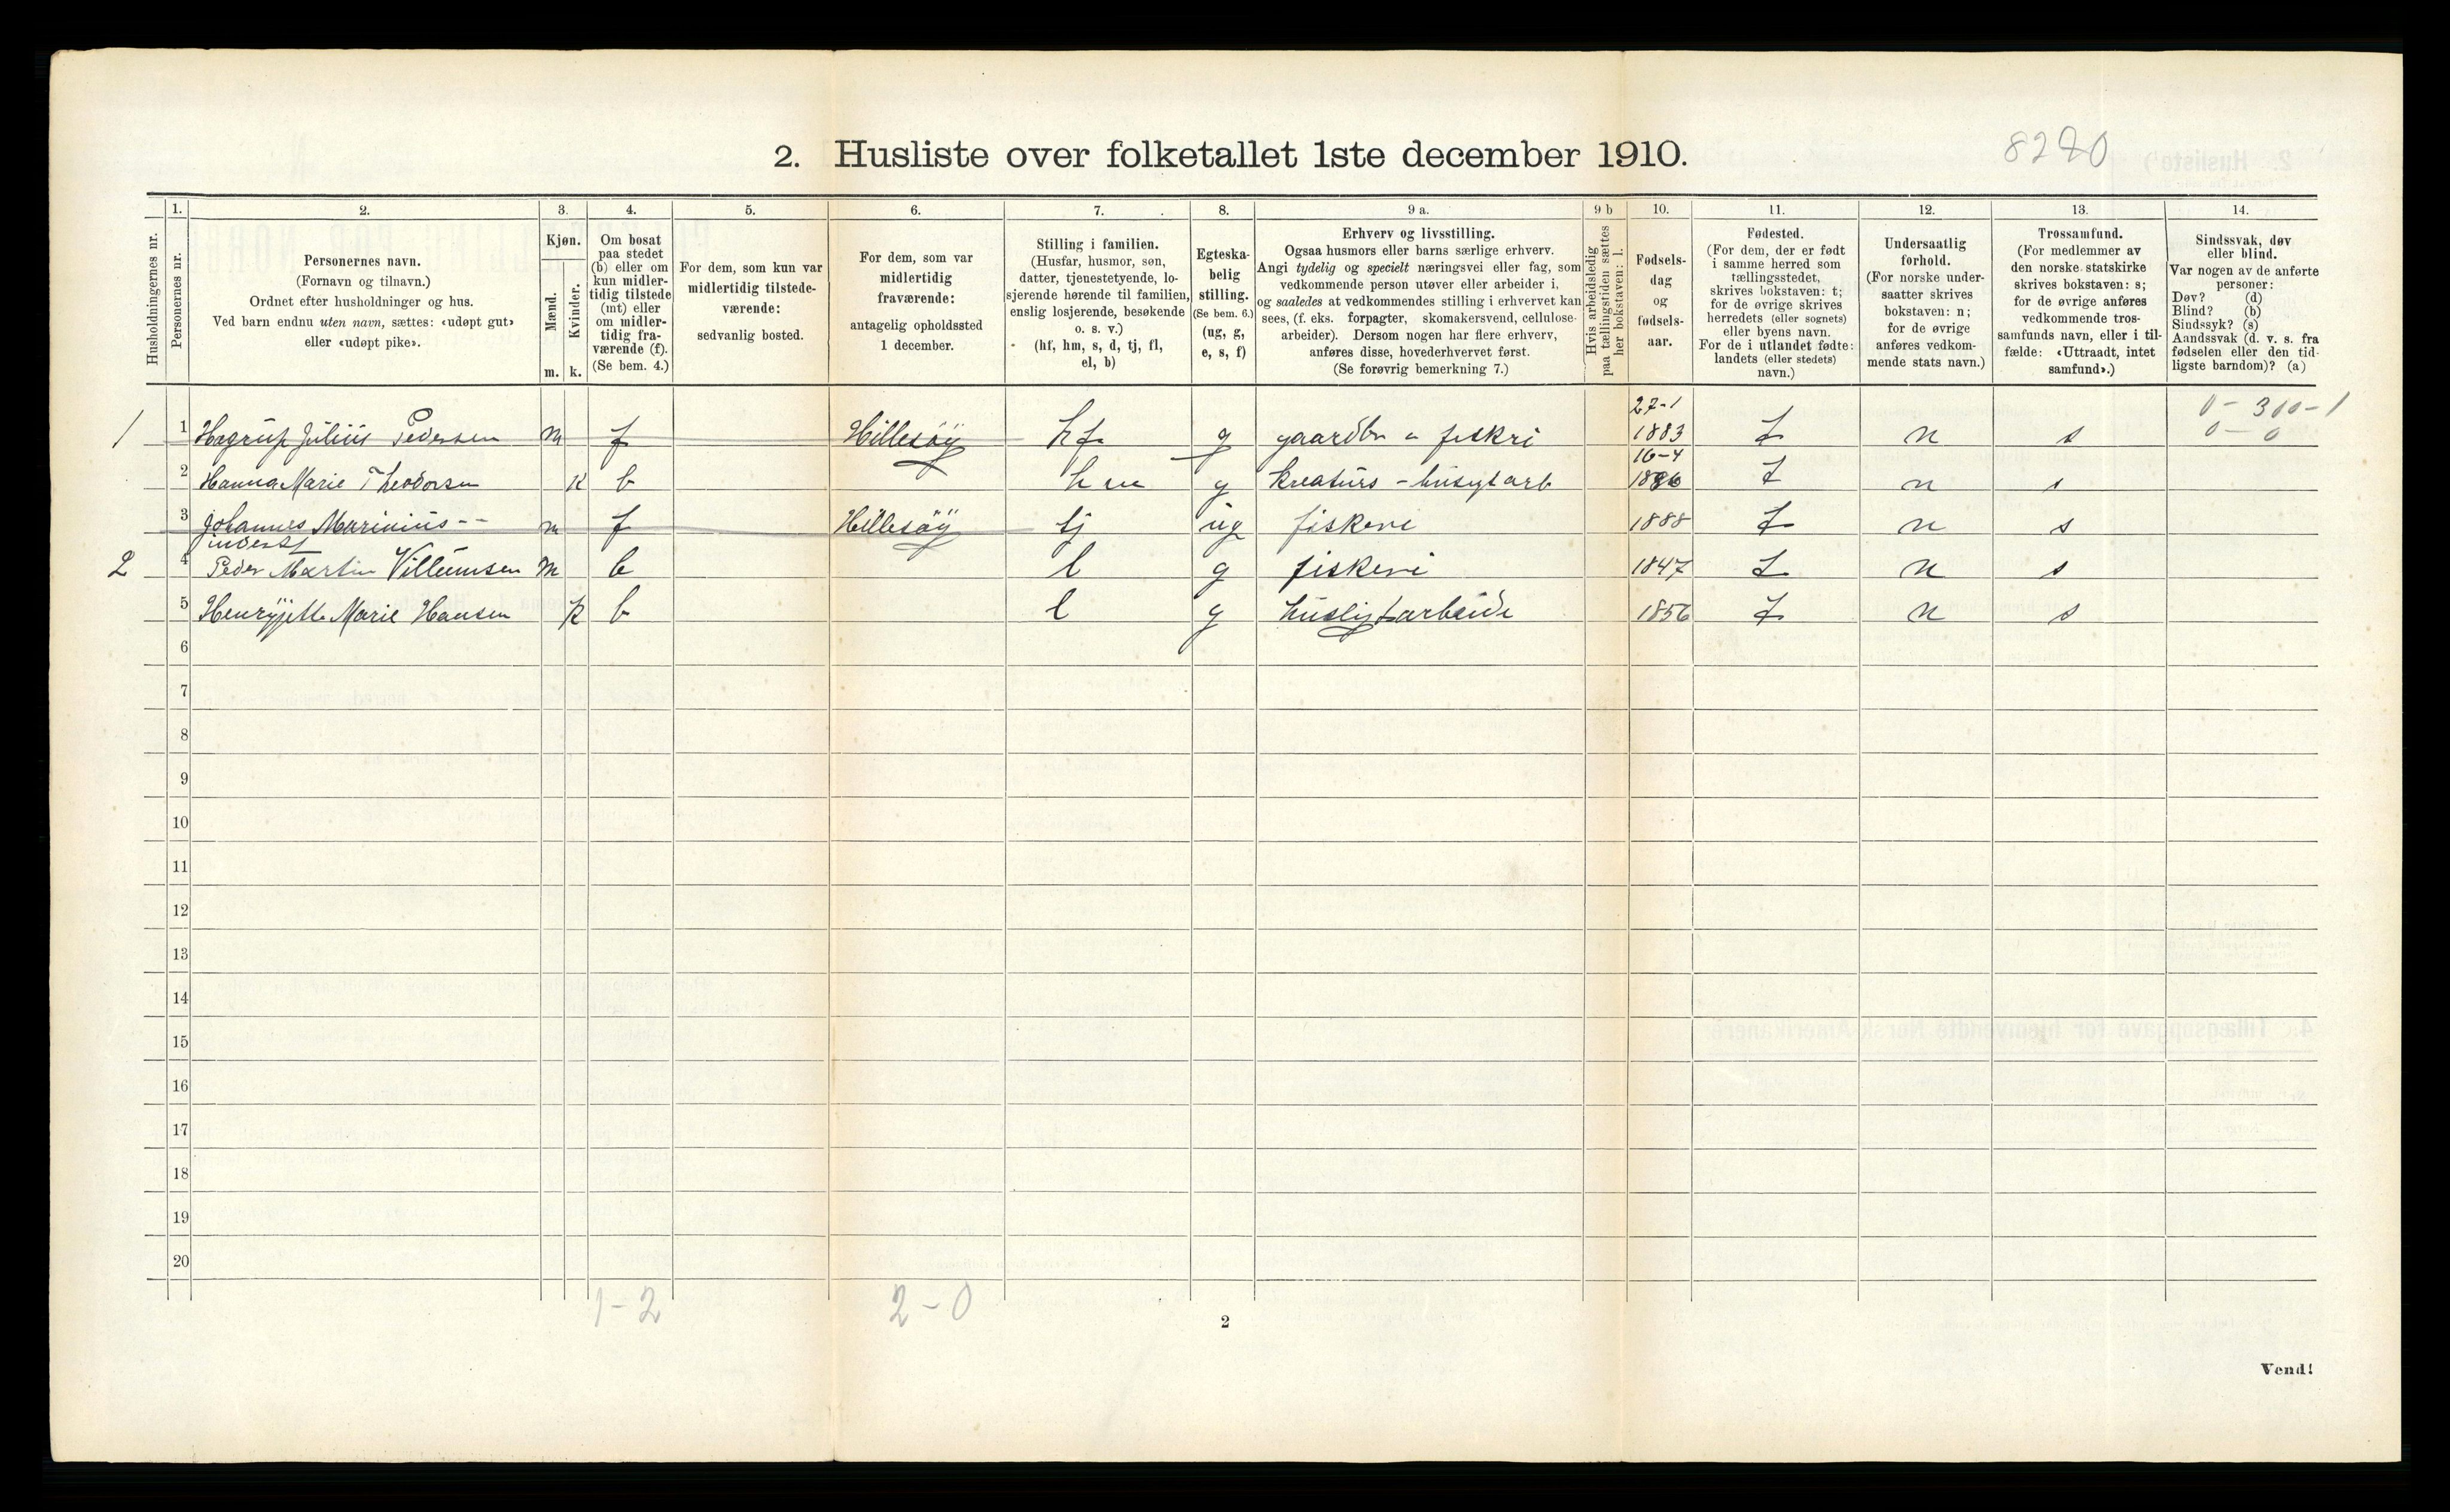 8220
2. Husliste over folketallet 1ste december 1910.
Husholdningernes nr.
1.
Personernes nr.
2.
Personernes navn.
(Fornavn og tilnavn.)
Ordnet efter husholdninger og hus.
Ved barn endnu uten navn, sættes: «udøpt gut»
eller «udøpt pike».
3.
Kjøn.
Mænd.
Kvinder.
m. k.
4.
Om bosat
paa stedet
(b) eller om
kun midler-
tidig tilstede
(mt) eller
om midler-
tidig fra-
værende (f).
(Se bem. 4.)
5.
For dem, som kun var
midlertidig tilstede-
værende:
sedvanlig bosted.
6.
For dem, som var
midlertidig
fraværende:
antagelig opholdssted
1 december.
7.
Stilling i familien.
(Husfar, husmor, søn,
datter, tjenestetyende, lo-
sjerende hørende til familien,
enslig losjerende, besøkende
o. s. v.)
(hf, hm, s, d, tj, fl,
el, b)
8.
Egteska-
belig
stilling.
(Se bem. 6.)
(ug, g,
e, s, f)
9 a.
Erhverv og livsstilling.
Ogsaa husmors eller barns særlige erhverv.
Angi tydelig og specielt næringsvei eller fag, som
vedkommende person utøver eller arbeider i,
og saaledes at vedkommendes stilling i erhvervet kan
sees, (f. eks. forpagter, skomakersvend, cellulose-
arbeider). Dersom nogen har flere erhverv,
anføres disse, hovederhvervet først.
(Se forøvrig bemerkning 7.)
9 b
Hvis arbeidsledig
paa tællingstiden sættes
her bokstaven: l.
10.
Fødsels-
dag
og
fødsels-
aar.
11.
Fødested.
(For dem, der er født
i samme herred som
tællingsstedet,
skrives bokstaven: t;
for de øvrige skrives
herredets (eller sognets)
eller byens navn.
For de i utlandet fødte:
landets (eller stedets)
navn.)
12.
Undersaatlig
forhold.
(For norske under-
saatter skrives
bokstaven: n;
for de øvrige
anføres vedkom-
mende stats navn.)
13.
Trossamfund.
(For medlemmer av
den norske statskirke
skrives bokstaven: s;
for de øvrige anføres
vedkommende tros-
samfunds navn, eller i til-
fælde: «Uttraadt, intet
samfund».)
14.
Sindssvak, døv
eller blind.
Var nogen av de anførte
personer:
Døv? (d)
Blind? (b)
Sindssyk? (s)
Aandssvak (d. v. s. fra
fødselen eller den tid-
ligste barndom)? (a)
27-1 0 - 300 - 1
1 1 Hagrup Julius Pedersen m f Hillesøy hf g gaardbr a fiskri 1883 t n s 0 - 0
16-4
2 Hanna Marie Theodorsen k b hm g kreaturs - husligt arb 1886 t n s
3 Johannes Marinius -- m f Hillesøy tj ug fiskeri 1888 t n s
inderst
2 4 Peder Martin Villumsen m b l g fiskeri 1847 t n s
5 Henryjette Marie Hansen k b l g husligt arbeide 1856 t n s
6
7
8
9
10
11
12
13
14
15
16
17
18
19
20
1-2 2-0
2
Vend!